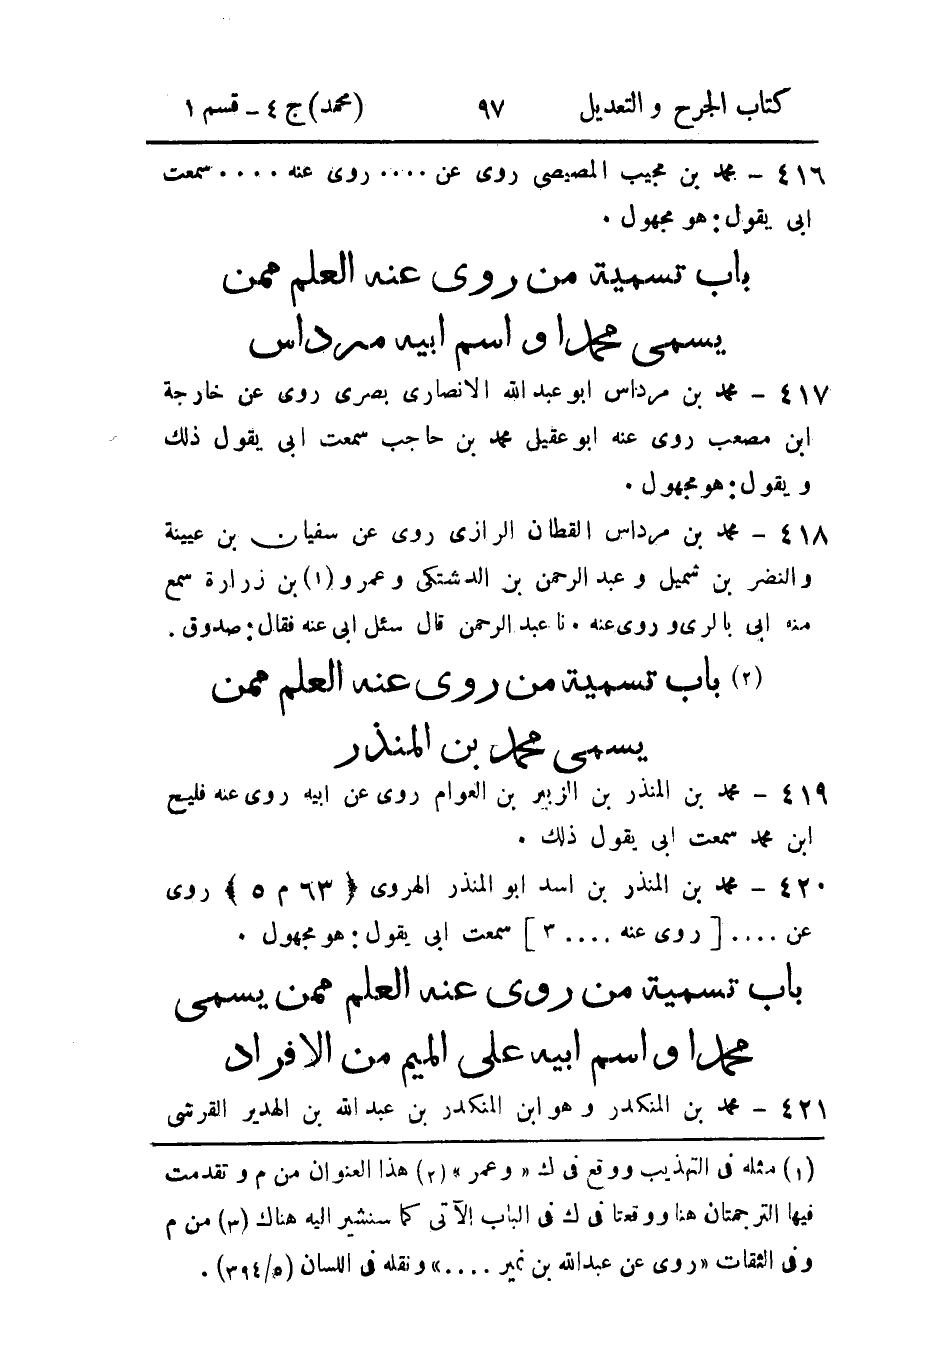 كتاب الجرح و التعديل ٩٧ (محمد) ج ٤ ـ قسم ١
٤١٦ ـ محمد بن مجيب المصيصي روى عن .... روى عنه .... سمعت
ابى يقول: هو مجهول .
باب تسمية من روى عنه العلم ممن
يسمى محمدا و اسم ابيه مرداس
٤١٧ ـ محمد بن مرداس ابو عبد الله الانصارى بصرى روى عن خارجة
ابن مصعب روى عنه ابو عقيل محمد بن حاجب سمعت ابى يقول ذلك
و يقول: هو مجهول .
٤١٨ ـ محمد بن مرداس القطان الرازى روى عن سفيان بن عيينة
والنضر بن شميل و عبد الرحمن بن الدشتكى و عمرو (١) بن زرارة سمع
منه ابى بالرى و روى عنه . نا عبد الرحمن قال سئل ابى عنه فقال: صدوق .
(٢) باب تسمية من روى عنه العلم ممن
يسمى محمد بن المنذر
٤١٩ ـ محمد بن المنذر بن الزبير بن العوام روى عن ابيه روى عنه فليح
ابن محمد سمعت ابى يقول ذلك .
٤٢٠ ـ محمد بن المنذر بن اسد ابو المنذر الهروى ﴿ ٦٣ م ٥ ﴾ روى
عن .... [ روى عنه .... ٣ ] سمعت ابى يقول: هو مجهول .
باب تسمية من روى عنه العلم ممن يسمى
محمدا و اسم ابيه على الميم من الافراد
٤٢١ ـ محمد بن المنكدر و هو ابن المنكدر بن عبد الله بن الهدير القرشى
(١) مثله فى التهذيب ووقع فى ك « وعمر » (٢) هذا العنوان من م و تقدمت
فيها الترجمتان هنا ووقعتا فى ك فى الباب الآتى كما سنشير اليه هناك (٣) من م
وفى الثقات « روى عن عبدالله بن نمير .... » ونقله فى اللسان (٣٩٤/٥) .